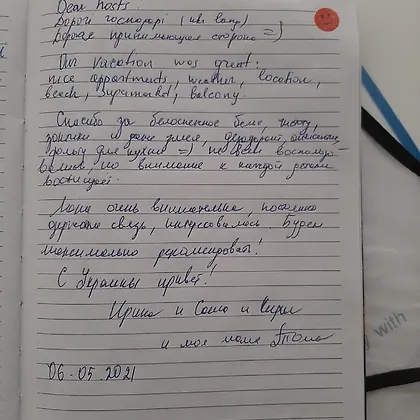 Dear hosts.
Дорогі господарі (ukr lang)
Дорогая принимающая сторона =)
Our vacation was great:
nice appartments, weather, location,
beach, supermarket, balcony.
Спасибо за белоснежное белье, чистоту,
и даже
=) не всем воспользо-
вались, но внимание к каждой детали
восхищает.
очень внимательна, постоянно
держала связь, интересовалась. Будем
максимально рекомендовать!
С Украины привет!
Ирина и Саша и
и моя мама
06.05.2021
with